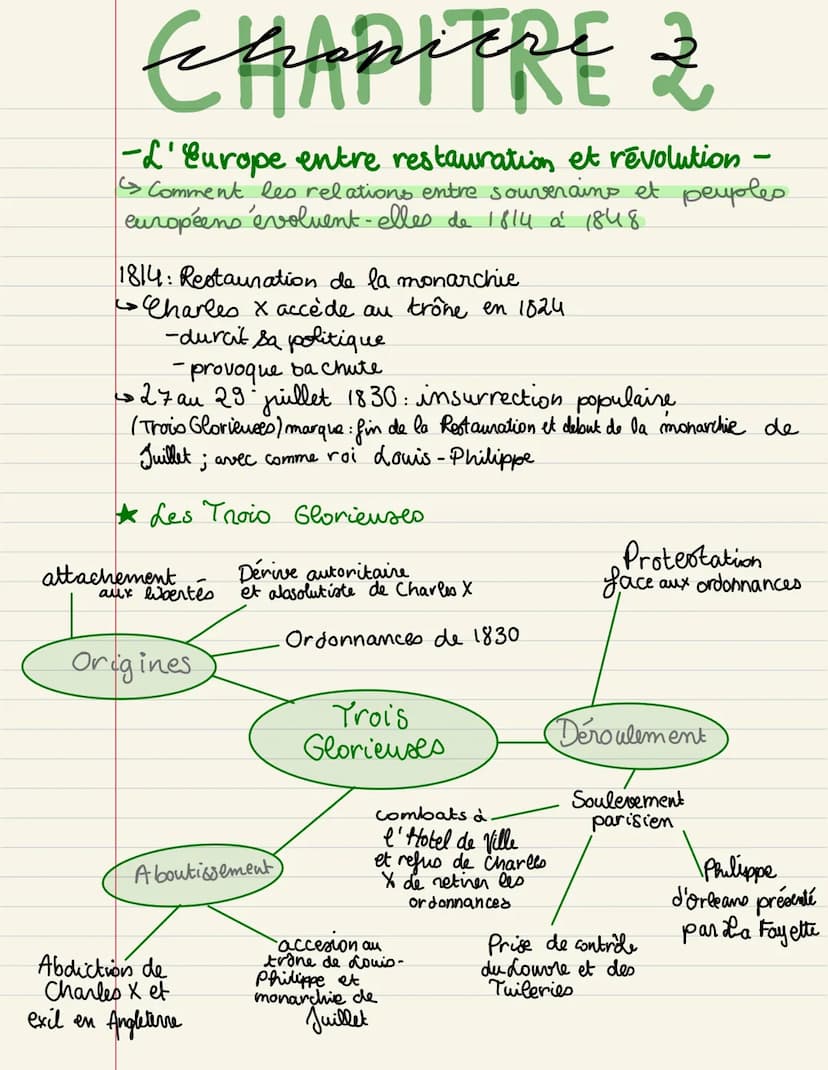 CHAPITRE 2
chapitre
-L'Europe entre restauration et révolution-
↳ Comment les relations entre souverains et peuples
européens évoluent-elles de 1814 à 1848
1814: Restauration de la monarchie
↳ Charles X accède au trône en 1824
-durcit sa politique
- provoque sa chute
↳ 27 au 29 juillet 1830: insurrection populaire
(Trois Glorieuses) marque: fin de la Restauration et debut de la monarchie de
Juillet ; avec comme roi Louis-Philippe
★ Les Trois Glorieuses
attachement
aux libertés
Dérive autoritaire
et absolutiste de Charles X
Ordonnances de 1830
Origines
Protestation
face aux ordonnances
Trois
Glorieuses
Déroulement
Soulevement
parisien
combats à
l'Hotel de Ville
et refus de Charles
X de retirer les
ordonnances
Philippe
d'Orleans présenté
par La Fayette
Prise de contrôle
du Louvre et des
Tuileries
Aboutissement
Abdiction de
Charles X et
exil en Angleterre
accesion au
trône de Louis-
Philippe et
monarchie de
Juillet